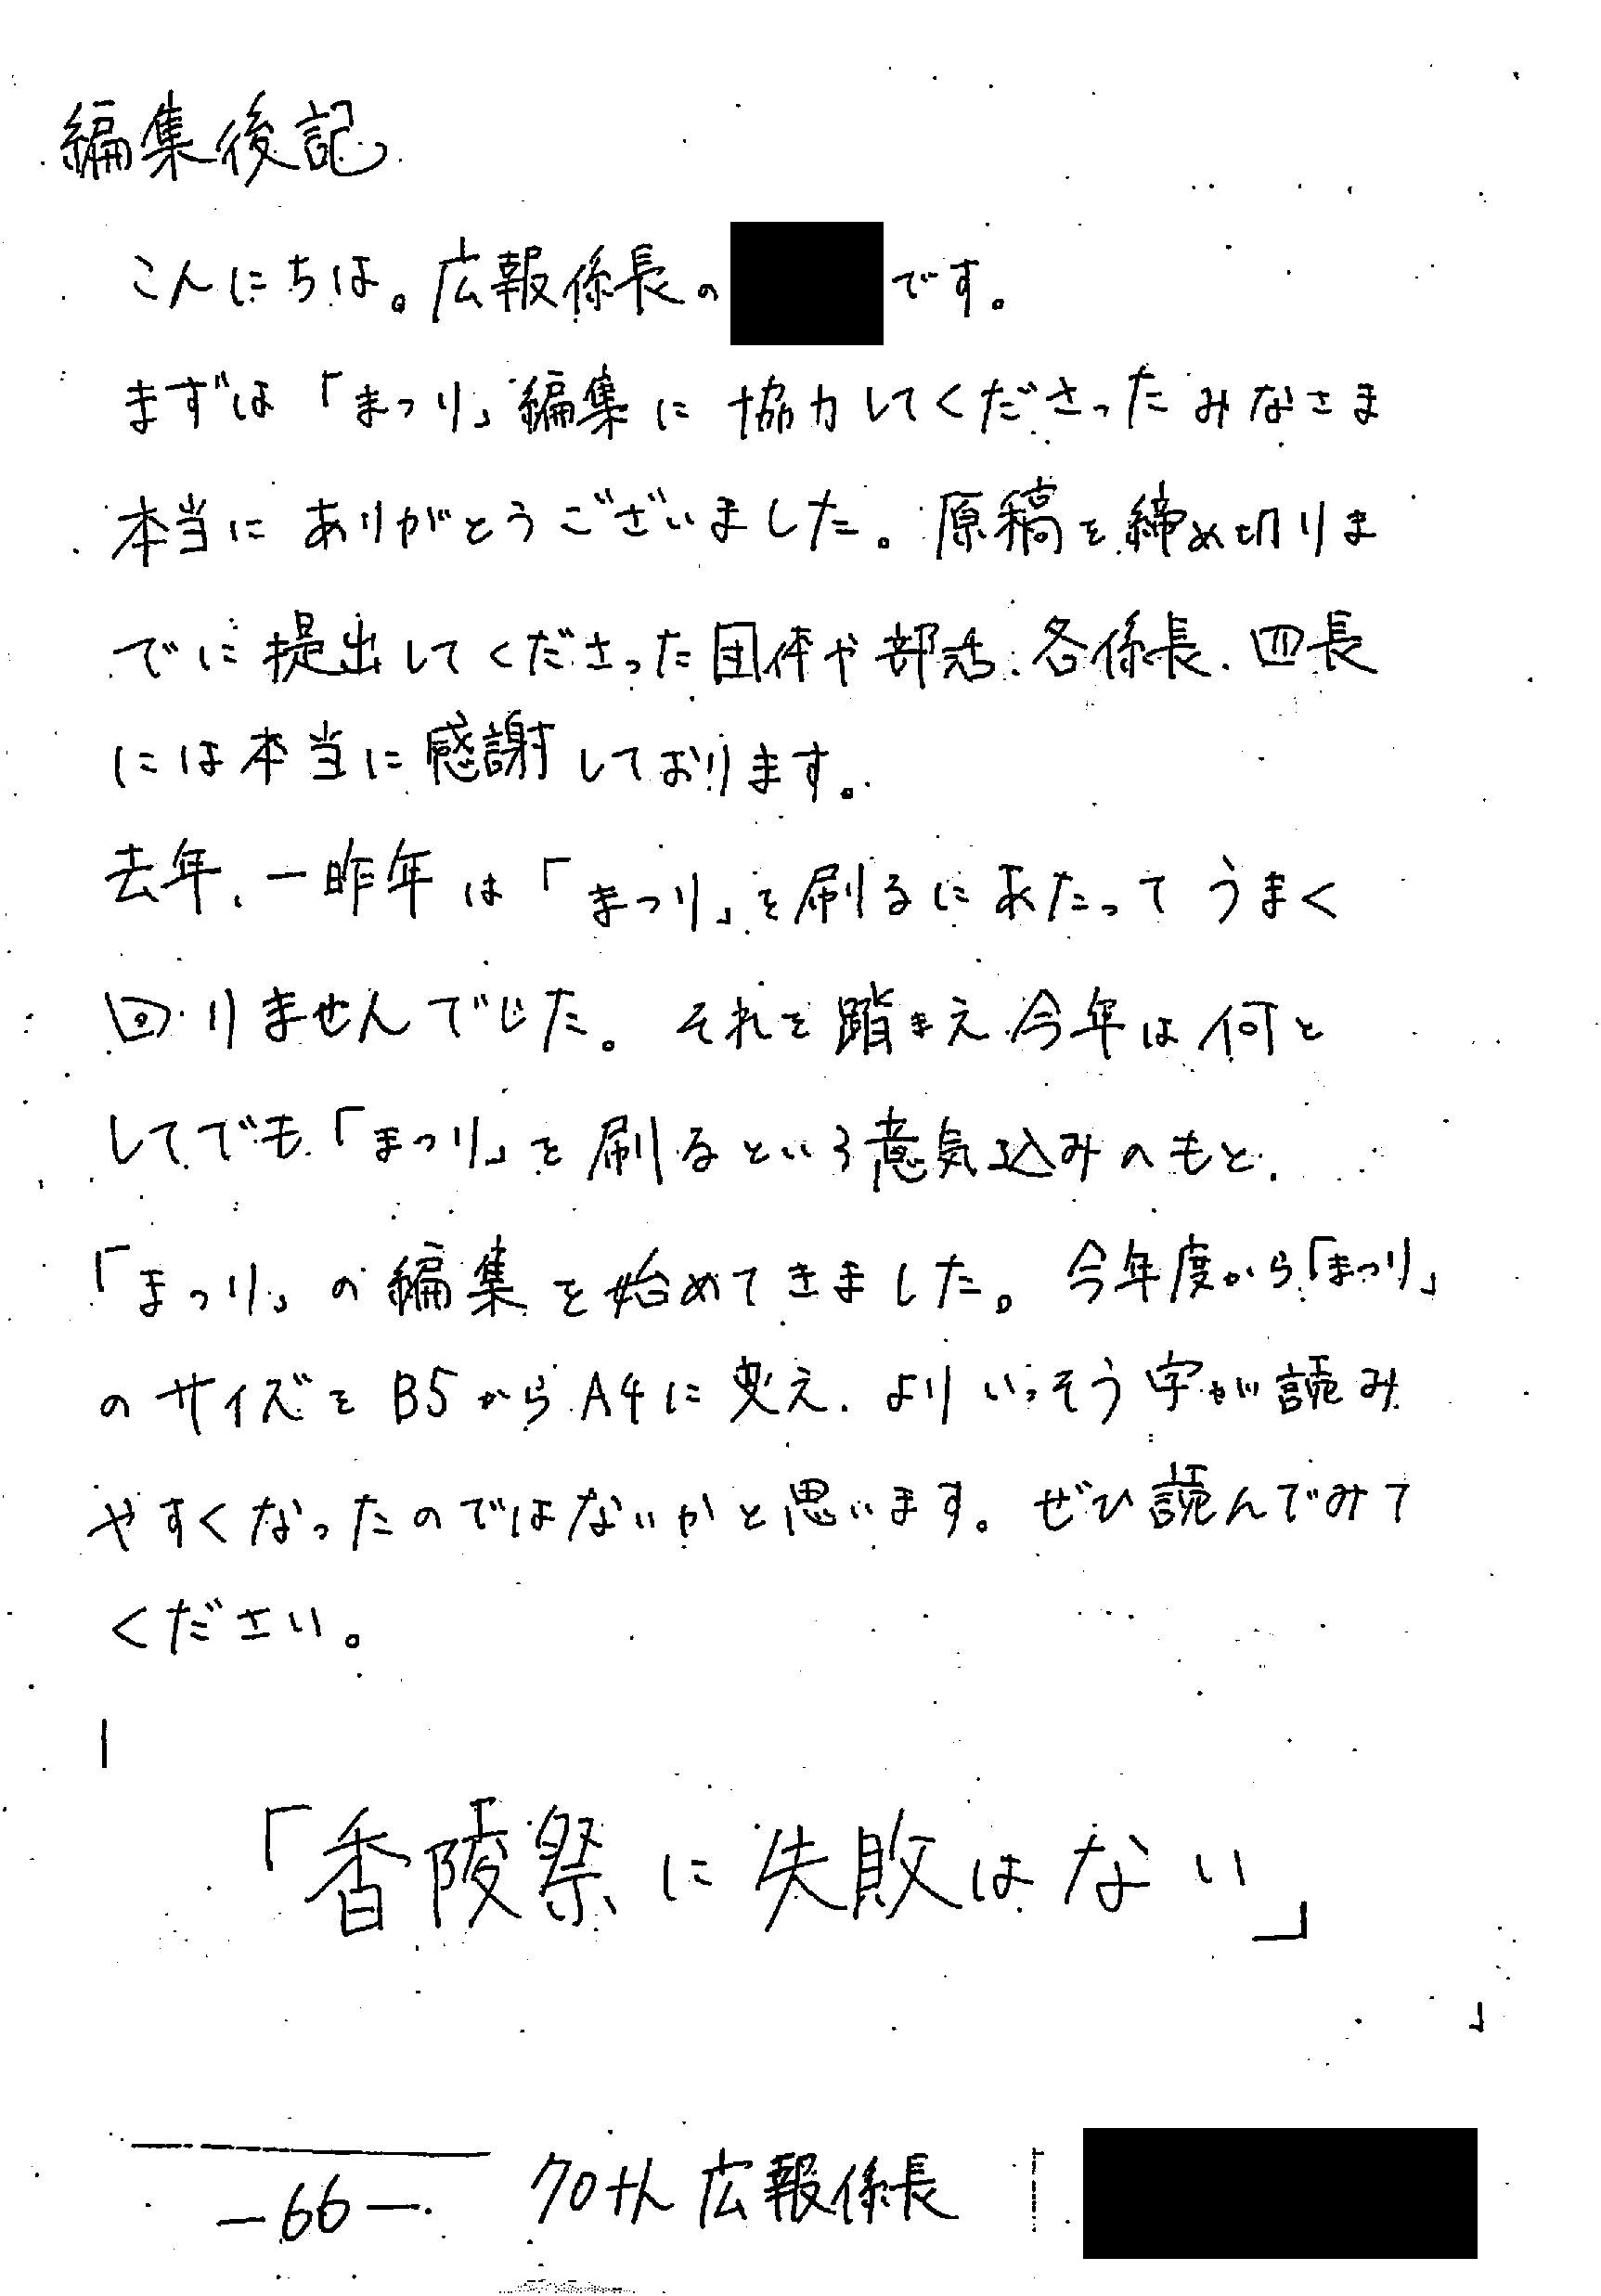 編集後記
こんにちは。広報係長の
です。
まずは「まつり」編集に協力してくださったみなさま
本当にありがとうございました。原稿を締め切りま
でに提出してくださった団体や部活、各係長、四長
には本当に感謝しております。
去年、一昨年は「まつり」を刷るにあたってうまく
回りませんでした。それを踏まえ今年は何と
してでも「まつり」を刷るという意気込みのもと、
「まつり」の編集を始めてきました。今年度から「まつり」
のサイズをB5からA4に変え、よりいっそう字が読み
やすくなったのではないかと思います。ぜひ読んでみて
ください。
「香陵祭に失敗はない」
-66-
70th 広報係長